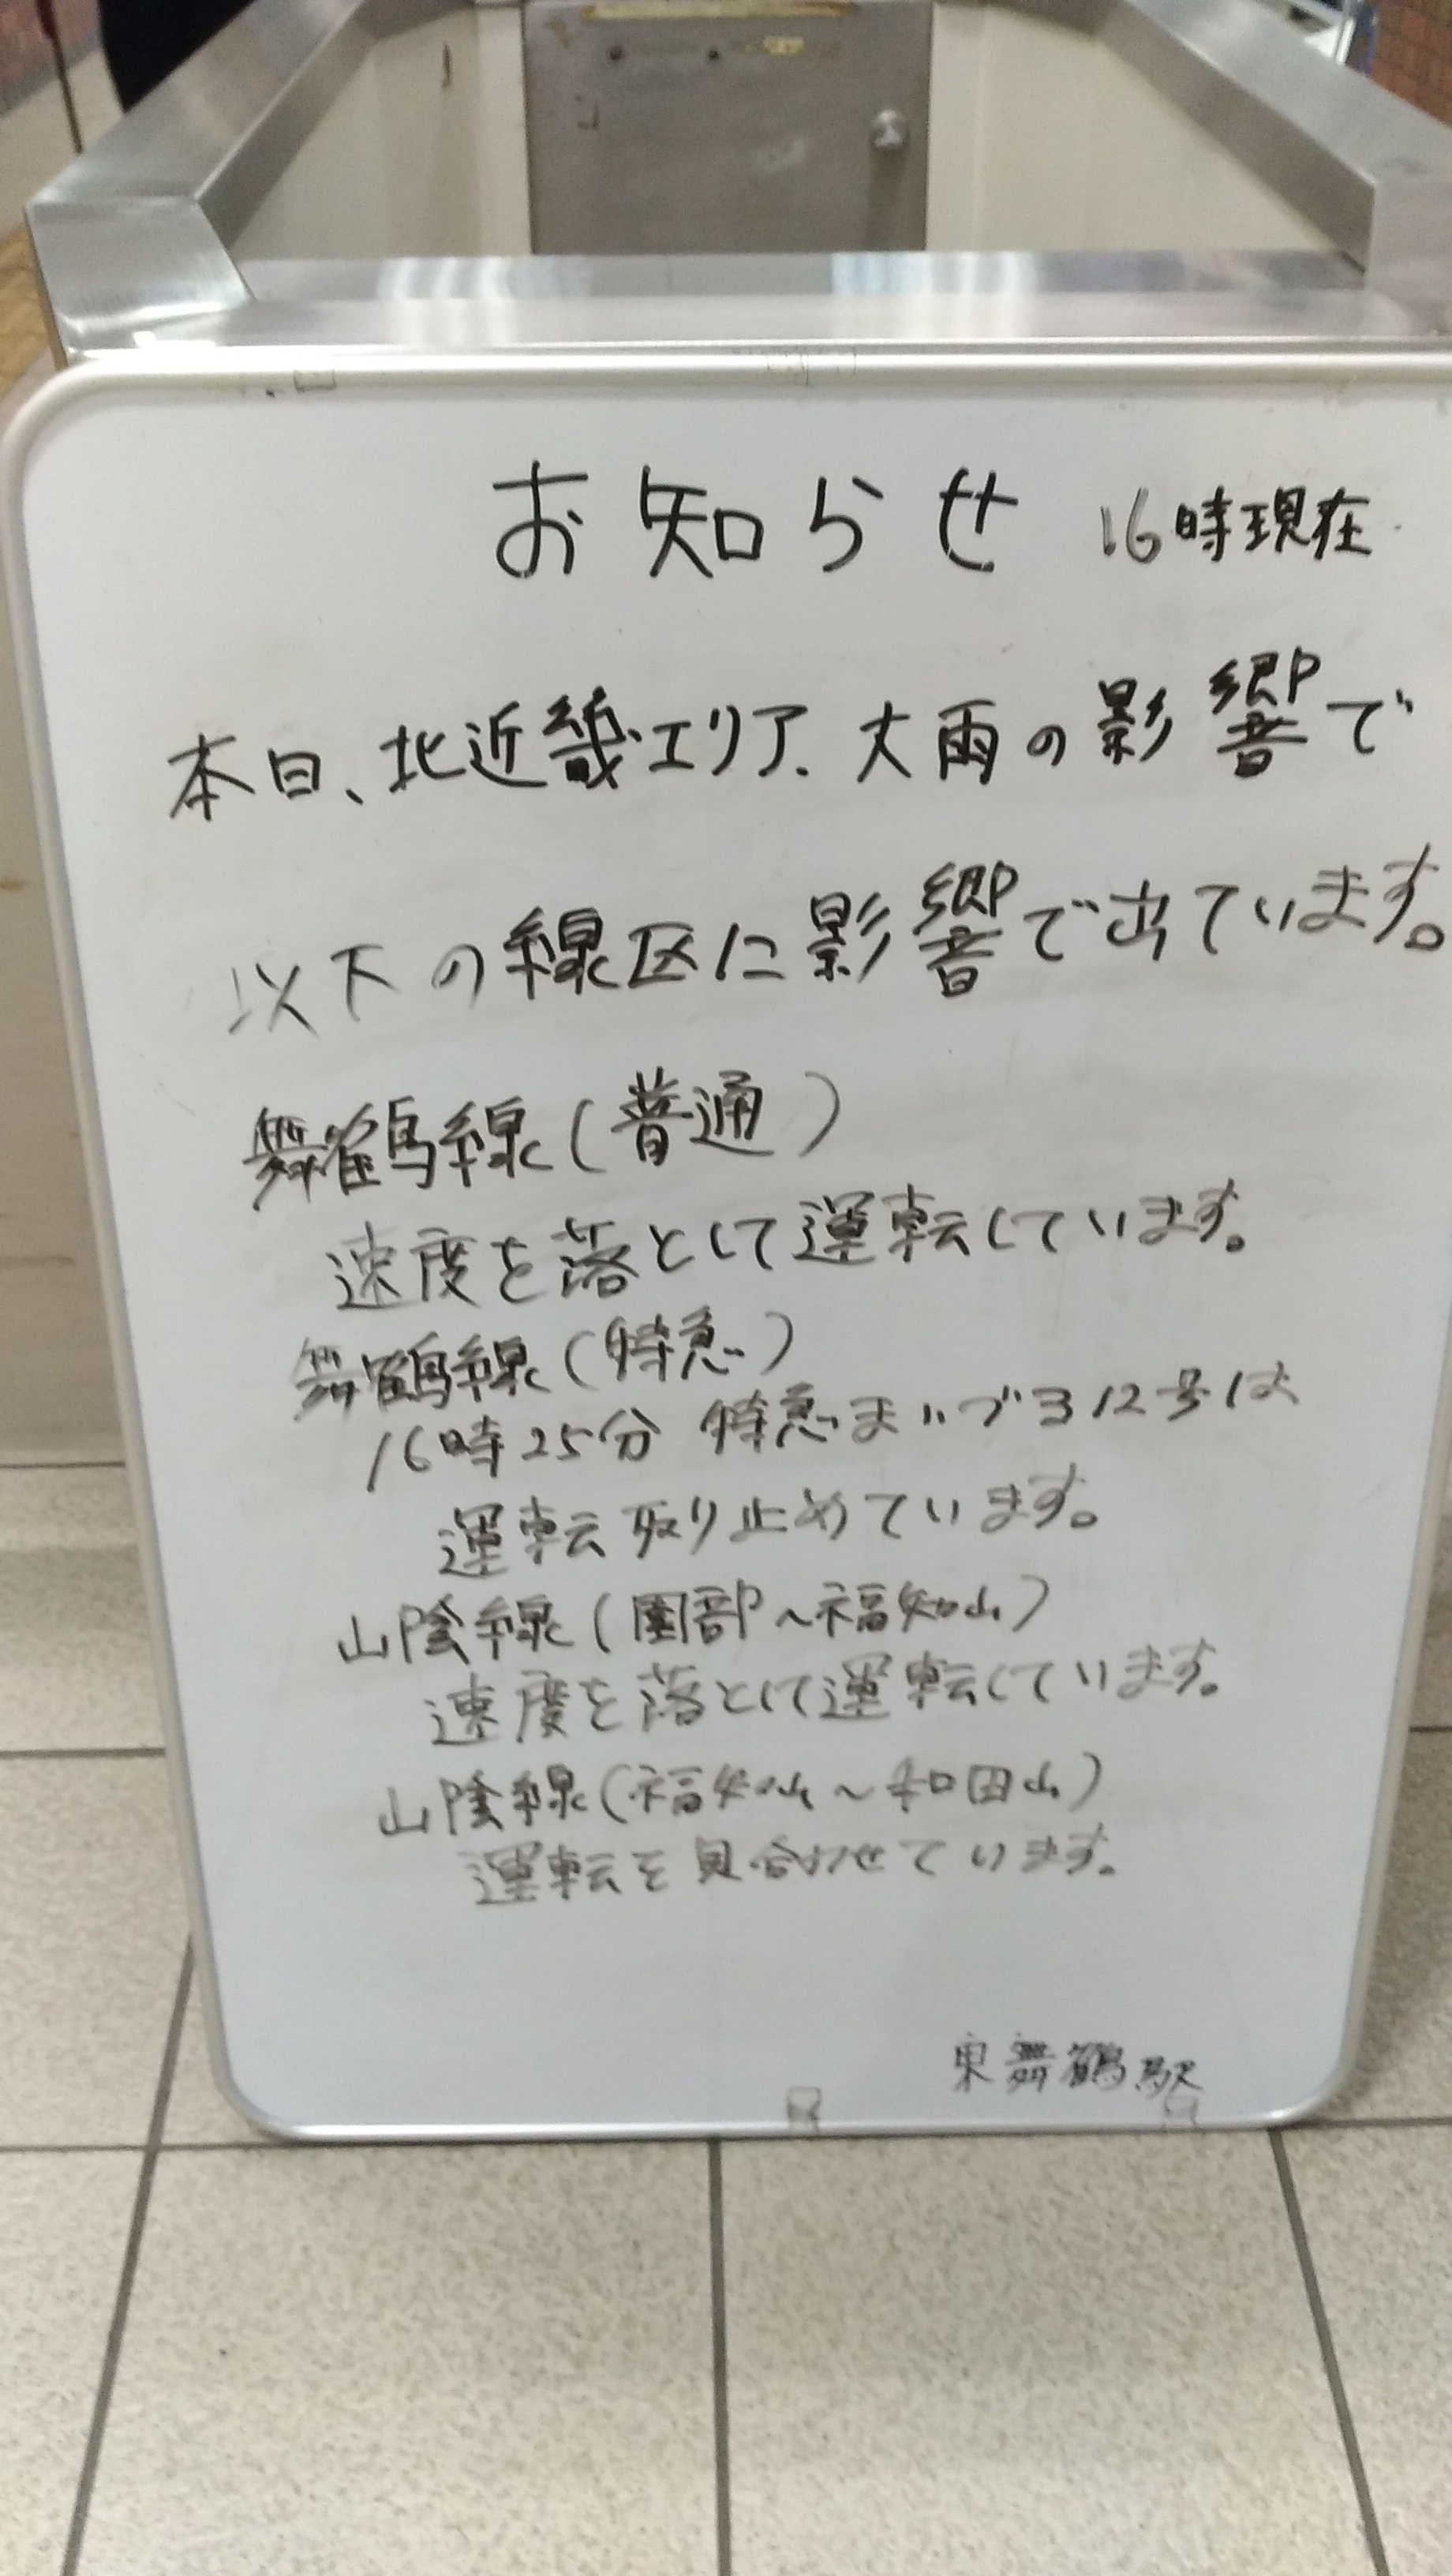 お知らせ 16時現在
本日、北近畿エリア、大雨の影響で
以下の線区に影響で出ています。
舞鶴線(普通)
速度を落として運転しています。
舞鶴線(特急)
16時25分 特急まいづる12号は
運転取り止めています。
山陰線(園部~福知山)
速度を落として運転しています。
山陰線(福知山~和田山)
運転を見合わせています。
東舞鶴駅